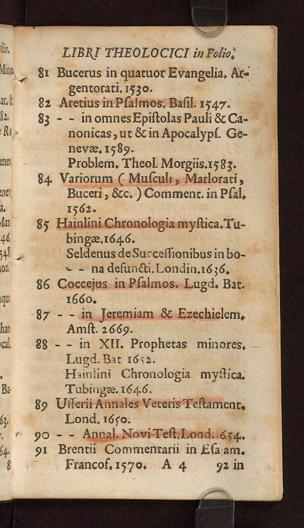 LIBRI THEOLOCICI in Folio.
81 Bucerus in quatuor Evangelia. Ar-
gentorati. 1530.
82 Aretius in Psalmos. Basil. 1547.
83 - - in omnes Epistolas Pauli & Ca-
nonicas, ut & in Apocalyps. Ge-
nevæ. 1589.
Problem. Theol. Morgiis. 1583.
84 Variorum ( Musculi, Marlorati,
Buceri, &c. ) Comment. in Psal.
1562.
85 Hainlini Chronologia mystica. Tu-
bingæ. 1646.
Seldenus de Successionibus in bo-
- - na defuncti. Londin. 1636.
86 Coccejus in Psalmos. Lugd. Bat.
1660.
87 - - in Jeremiam & Ezechielem.
Amst. 2669.
88 - - in XII. Prophetas minores.
Lugd. Bat 1652.
Hainlini Chronologia mystica.
Tubingæ. 1646.
89 Usserii Annales Veteris Testament.
Lond. 1650.
90 - - Annal. Novi Test. Lond. 1654.
91 Brentii Commentarii in Esaiam.
Francof. 1570. A 4 92 in